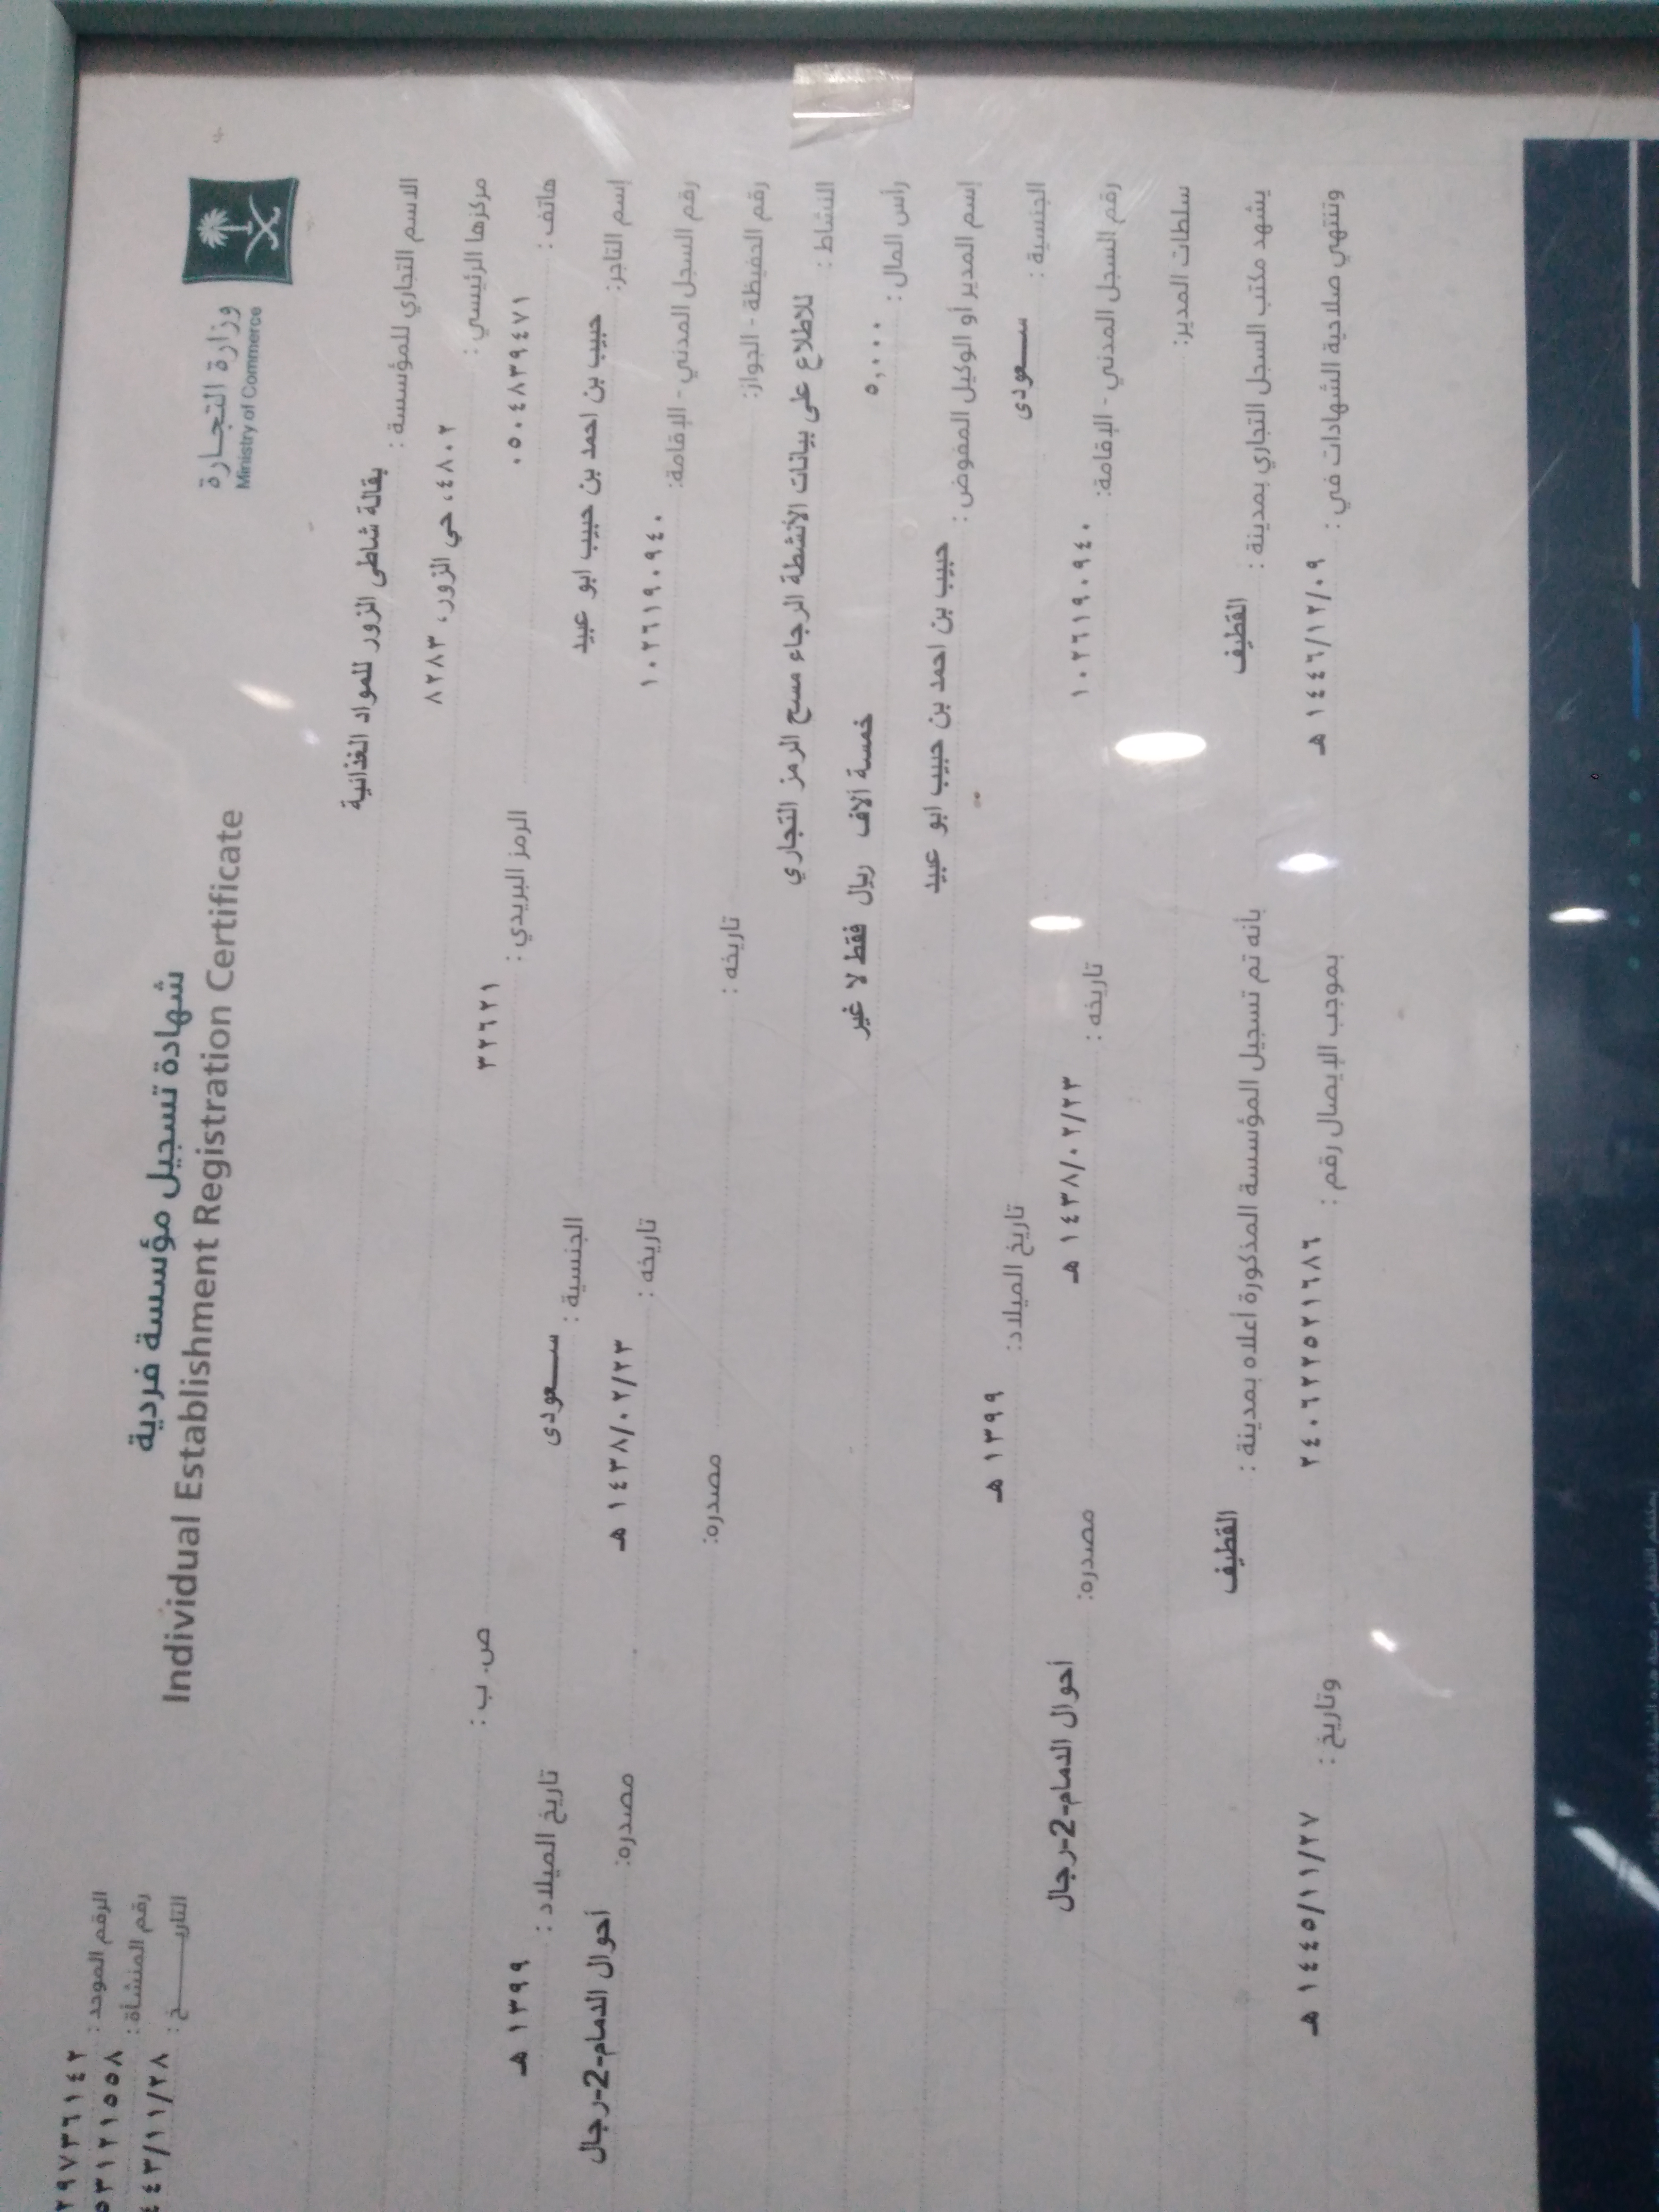 وزارة التجارة
Ministry of Commerce
شهادة تسجيل مؤسسة فردية
Individual Establishment Registration Certificate
الرقم الموحد : ٢٩٧٣٦١٤٢
رقم المنشأة : ٥٣١٢١٥٥٨
التاريـــــخ : ٤٤٣/١١/٢٨
الاسم التجاري للمؤسسة : بقالة شاطى الزور للمواد الغذائية
مركزها الرئيسي : ٤٨٠٢، حي الزور، ٨٢٨٣
هاتف : ٠٥٠٤٨٣٩٤٧١ الرمز البريدي : ٣٢٦٢١ ص. ب :
إسم التاجر: حبيب بن احمد بن حبيب ابو عبيد الجنسية : سـعودى تاريخ الميلاد : ١٣٩٩ هـ
رقم السجل المدني - الإقامة: ١٠٢٦١٩٠٩٤٠ تاريخه : ١٤٣٨/٠٢/٢٣ هـ مصدره: أحوال الدمام-2-رجال
رقم الحفيظة - الجواز: تاريخه : مصدره:
النشاط : للاطلاع على بيانات الأنشطة الرجاء مسح الرمز التجاري
رأس المال : ٥,٠٠٠ خمسة آلاف ريال فقط لا غير
إسم المدير أو الوكيل المفوض : حبيب بن احمد بن حبيب ابو عبيد
الجنسية : سـعودى تاريخ الميلاد: ١٣٩٩ هـ
رقم السجل المدني - الإقامة: ١٠٢٦١٩٠٩٤٠ تاريخه : ١٤٣٨/٠٢/٢٣ هـ مصدره: أحوال الدمام-2-رجال
سلطات المدير:
يشهد مكتب السجل التجاري بمدينة : القطيف بأنه تم تسجيل المؤسسة المذكورة أعلاه بمدينة : القطيف
وتنتهي صلاحية الشهادات في : ١٤٤٦/١٢/٠٩ هـ بموجب الإيصال رقم : ٢٤٠٦٢٢٥٢١٦٨٦ وتاريخ : ١٤٤٥/١١/٢٧ هـ